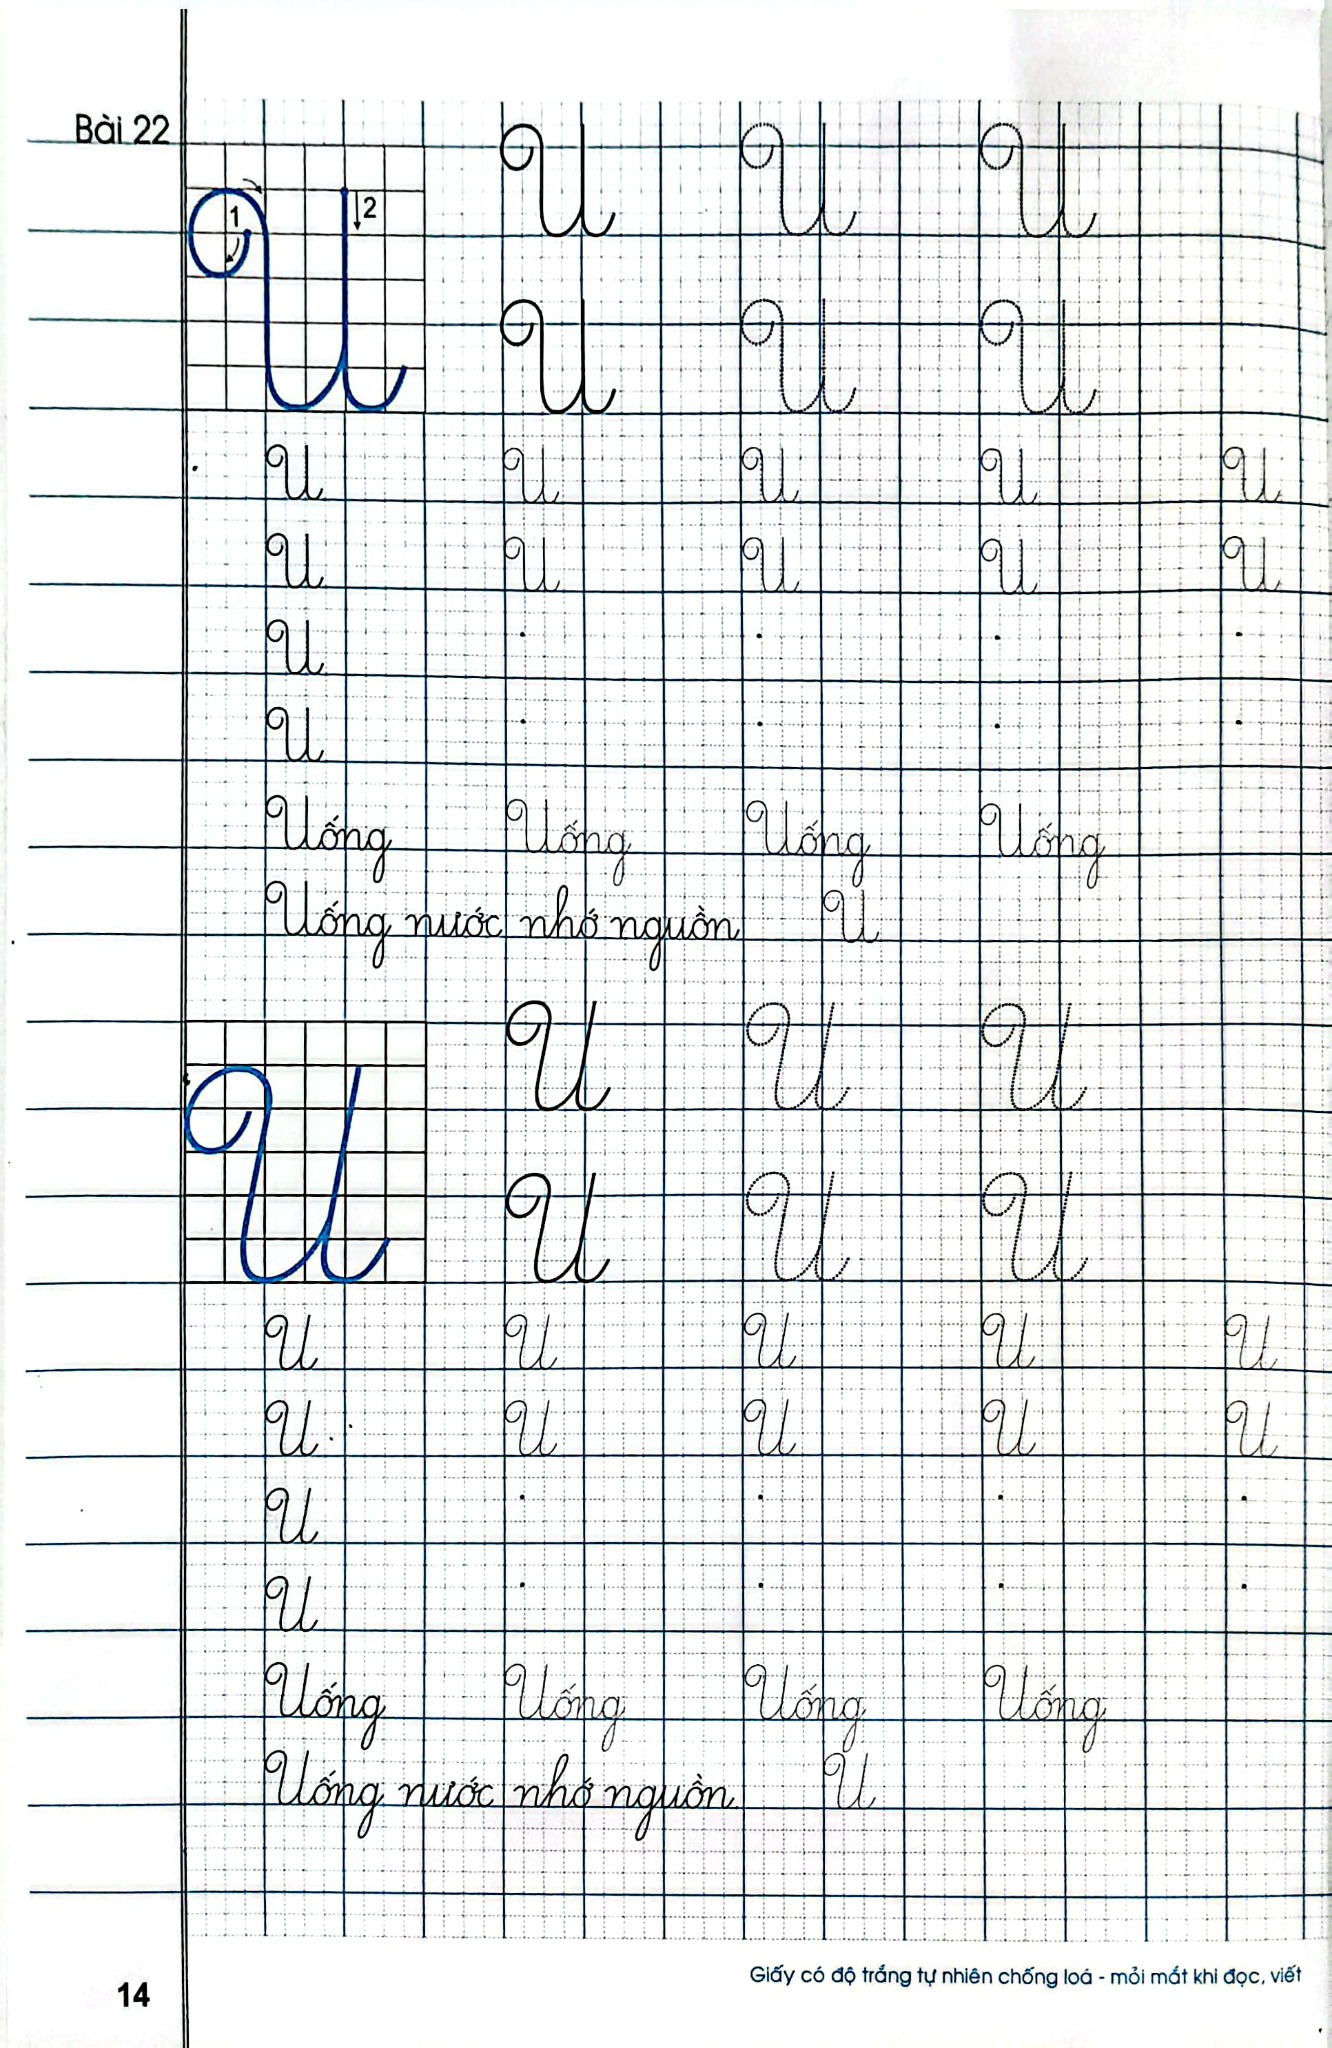 Bài 22
U U U
1 2
U U U
U U U U U
U U U U U
U
U
Uống Uống Uống Uống
Uống nước nhớ nguồn U
U U U
U
U U U
U U U U U
U U U U U
U
U
Uống Uống Uống Uống
Uống nước nhớ nguồn U
Giấy có độ trắng tự nhiên chống loá - mỏi mắt khi đọc, viết
14